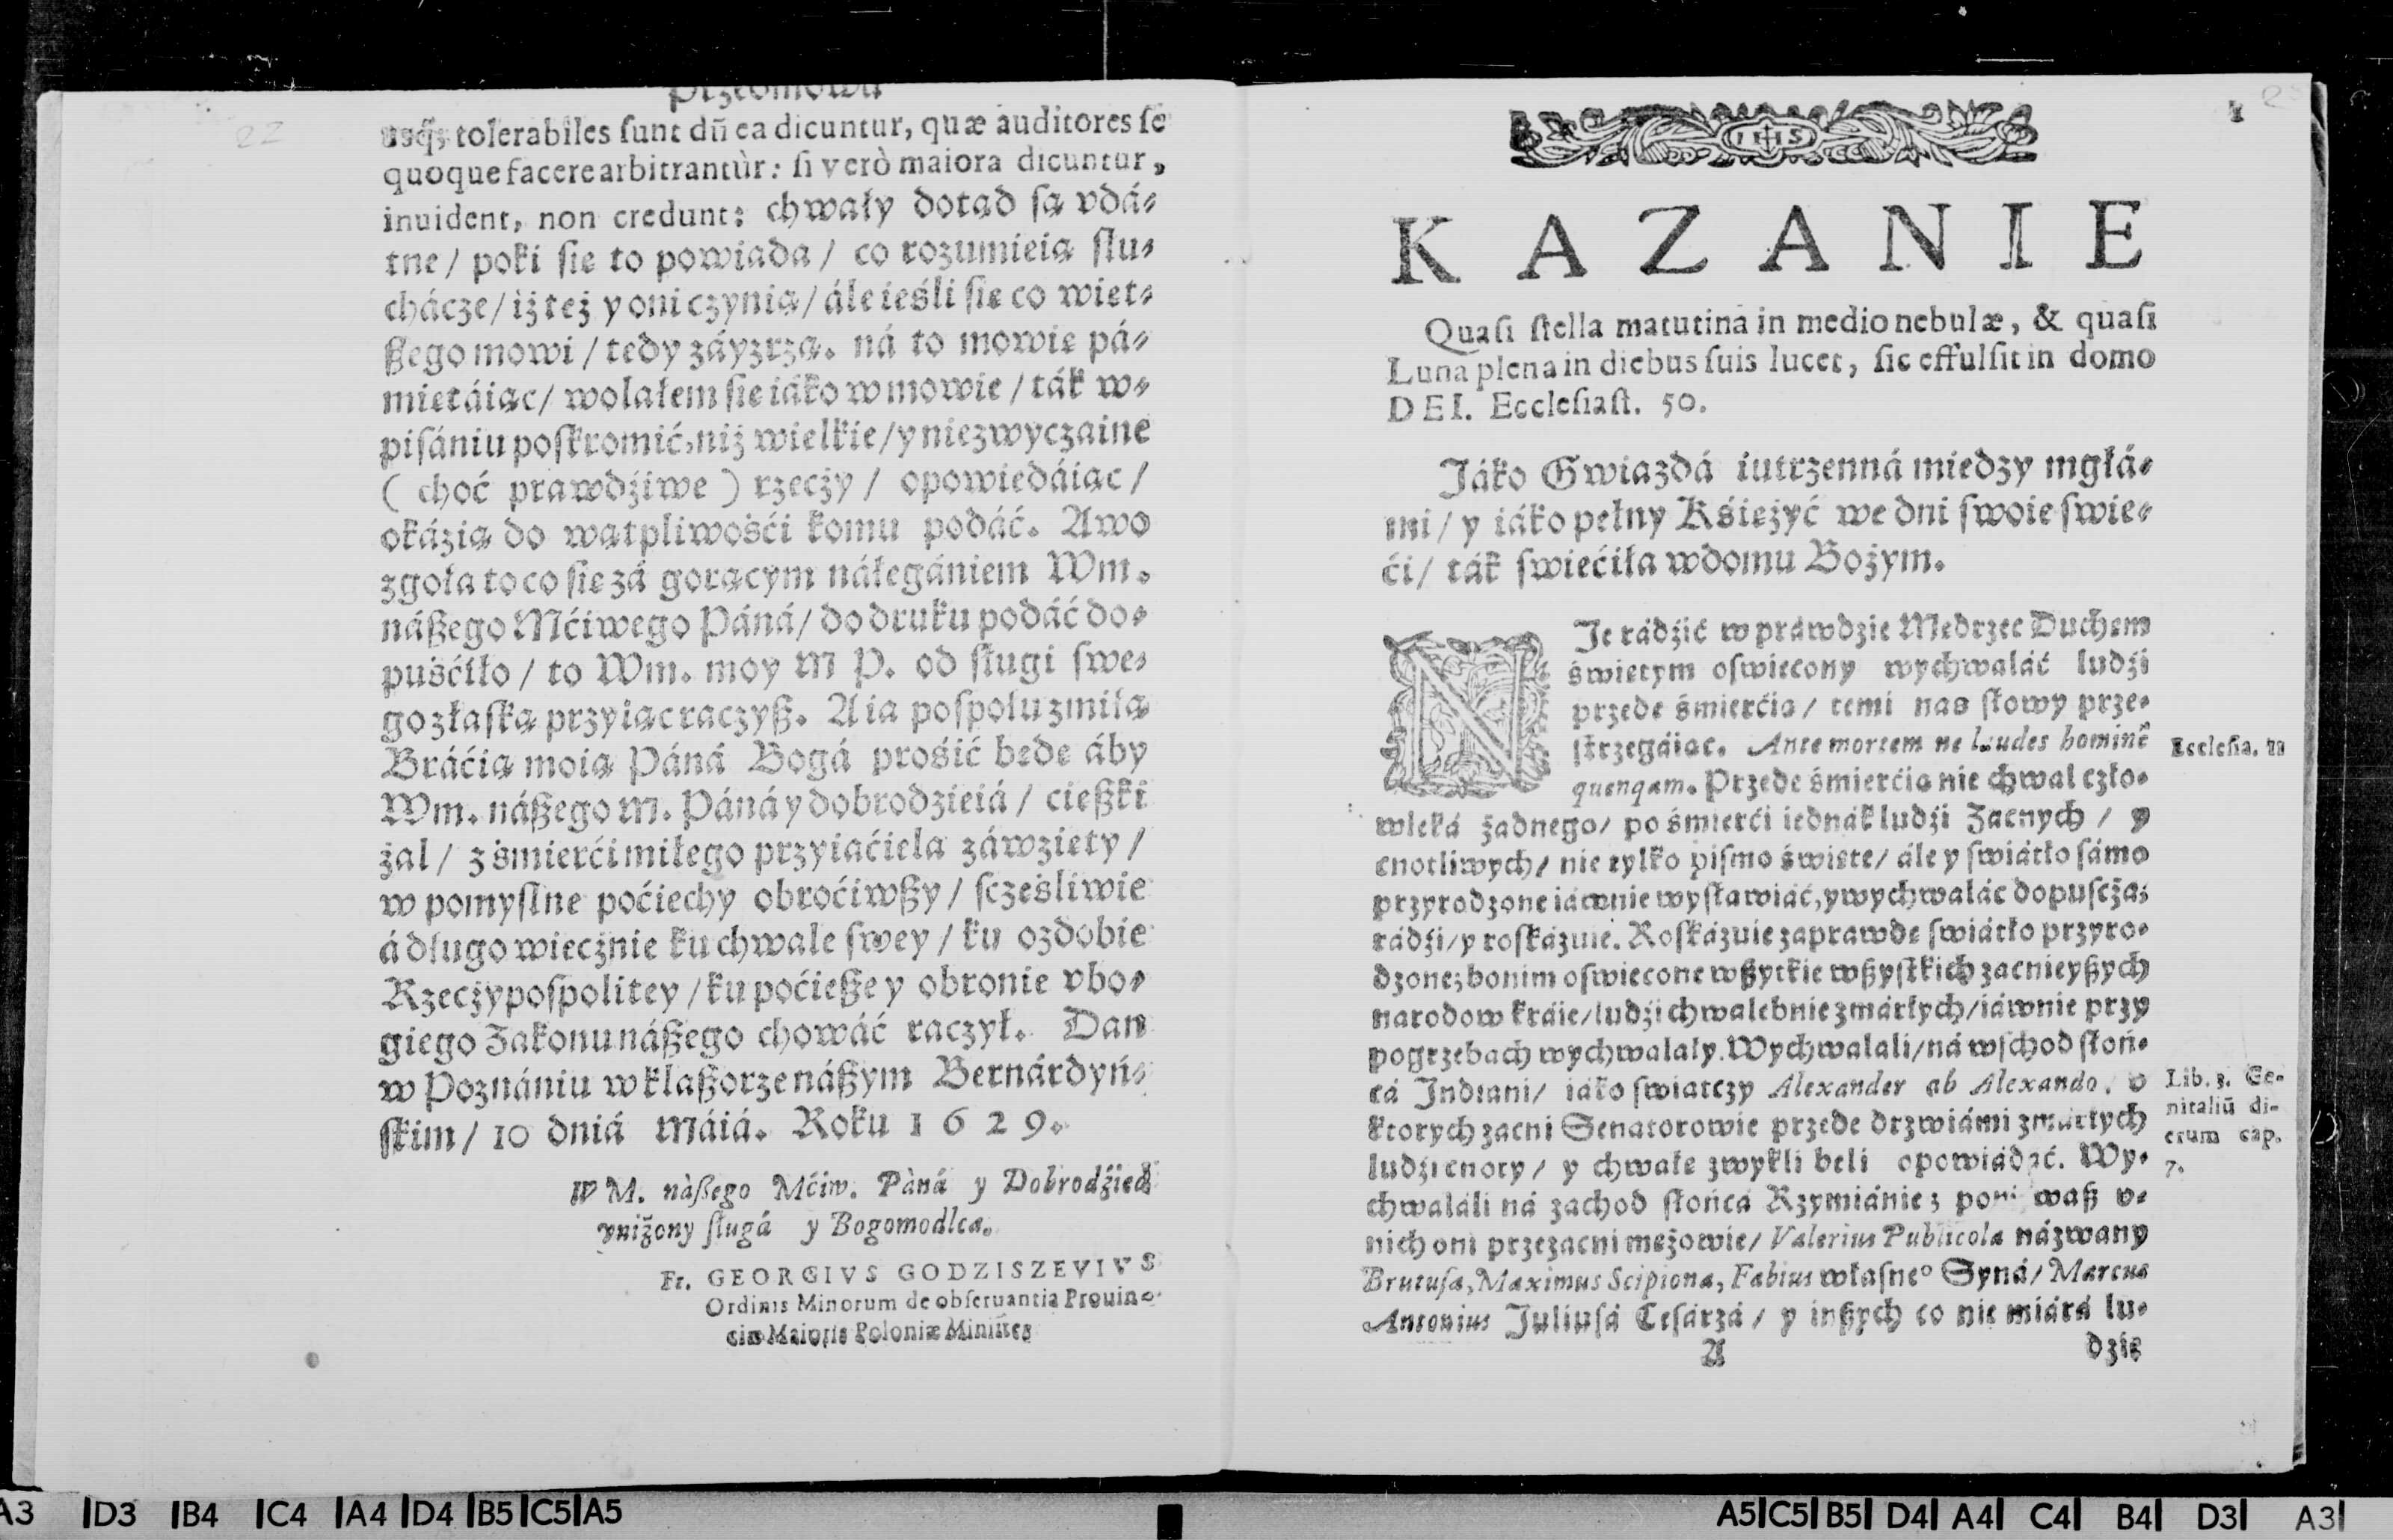 22
Przedmowa
usq́; tolerabiles ſunt dū ea dicuntur, quæ auditores ſe
quoque facere arbitrantùr: ſi verò maiora dicuntur,
inuident, non credunt: chwały dotąd ſą vdá-
tne / poki ſie to powiada / co rozumieią ſłu-
chácze / iż też y oni czynią / ále ieśli ſie co więt-
ßego mowi / tedy záyzrzą. ná to mowię pá-
miętáiąc / wolałem ſie iáko w mowie / ták w-
piſániu poſkromić, niż wielkie / y niezwyczaine
( choć prawdźiwe ) rzecży / opowiedáiąc /
okázią do wątpliwośći komu podáć. Awo
zgoła to co ſie zá gorącym náłegániem Wm.
náßego Mćiwego Páná / do druku podáć do-
puśćiło / to Wm. moy M P. od ſługi ſwe-
go złaſką przyiąc raczyß. A ia poſpołu zmiłą
Bráćią moią Páná Bogá prośić będę áby
Wm. náßego M. Páná y dobrodzieiá / cięßki
żal / z śmierći miłego przyiaćiela záwzięty /
w pomyſlne poćiechy obroćiwßy / ſczęśliwie
á długo wiecżnie ku chwale ſwey / ku ozdobie
Rzecżypoſpolitey / ku poćieße y obronie vbo-
giego Zakonu náßego chowáć raczył. Dan
w Poznániu w klaßorze náßym Bernárdyń-
ſkim / 10 dniá Máiá. Roku 1 6 2 9.
W M. nàßego Mćiw. Pàná y Dobrodźieiá
vniżony ſługá y Bogomodlca.
Fr. GEORGIVS GODZISZEVIVS
Ordinis Minorum de obſeruantia Prouin-
ciæ Maioris Poloniæ Miniſter
1
IHS
KAZANIE
Quaſi ſtella matutina in medio nebulæ, & quaſi
Luna plena in diebus ſuis lucet, ſic effulſit in domo
DEI. Eccleſiaſt. 50.
Jáko Gwiazdá iutrzenná miedzy mgłá-
mi / y iáko pełny Kśiężyć we dni ſwoie ſwie-
ći / ták ſwiećiła w domu Bożym.
NJe rádźić w práwdzie Mędrzec Duchem
świętym oſwiecony wychwaláć ludźi
przede śmierćią / temi nas ſłowy prze-
ſtrzegáiąc. Ante mortem ne laudes hominē
quenqam. Przede śmierćią nie chwal czło-
wieká żadnego / po śmierći iednák ludźi Zacnych / y
cnotliwych / nie tylko piſmo święte / ále y ſwiátło ſámo
przyrodzone iáwnie wyſławiáć, y wychwaláć dopuſcża;
rádźi / y roſkázuie. Roſkázuie zaprawdę ſwiátło przyro-
dzone; bo nim oſwiecone wßytkie wßyſtkich zacnieyßych
narodow kráie / ludźi chwalebnie zmárłych / iáwnie przy
pogrzebach wychwalały. Wychwalali / ná wſchod ſłoń-
cá Indiani / iáko ſwiatczy Alexander ab Alexando. v
ktorych zacni Senatorowie przede drzwiámi zmárłych
ludźi cnoty / y chwałę zwykli beli opowiádać. Wy-
chwaláli ná zachod ſłońcá Rzymiánie; poniewaß v-
nich oni przezacni mężowie / Valerius Publicola názwany
Brutuſa, Maximus Scipiona, Fabius własneº Syná / Marcus
Antonius Juliuſá Ceſárzá / y inßych co nie miárá lu-
A dzię
Eccleſia. 11
Lib. 3. Ge-
nitaliū di-
erum cap.
7.
A3 D3 B4 C4 A4 D4 B5 C5 A5
A5 C5 B5 D4 A4 C4 B4 D3 A3